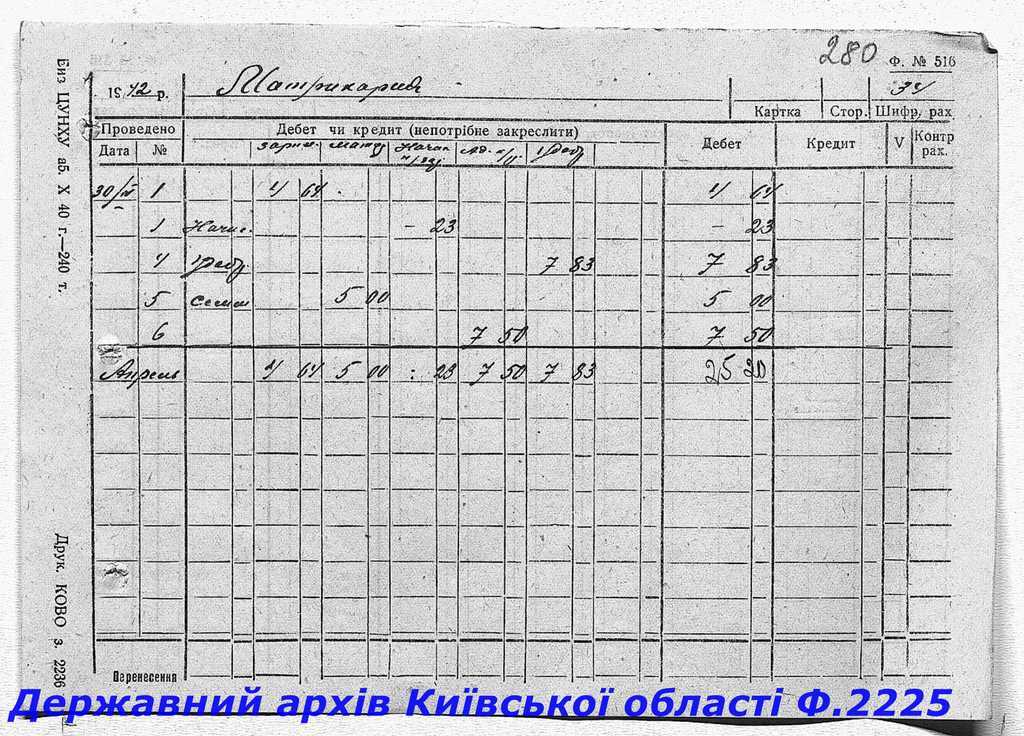 280
Ф. № 516
1942 р. Матрикария 34
Картка Стор. Шифр. рах.
Проведено Дебет чи кредит (непотрібне закреслити) Дебет Кредит V Контр рах.
Дата №
30/IV 1 4 64 4 64
1 Начис. – 23 – 23
4 7 83 7 83
5 семен 5 00 5 00
6 7 50 7 50
Апрель 4 64 5 00 : 23 7 50 7 83 25 20
Перенесення
Биз ЦУНХУ аб. Х 40 г.—240 т.
Друк. КОВО з. 2236
Державний архів Київської області Ф.2225